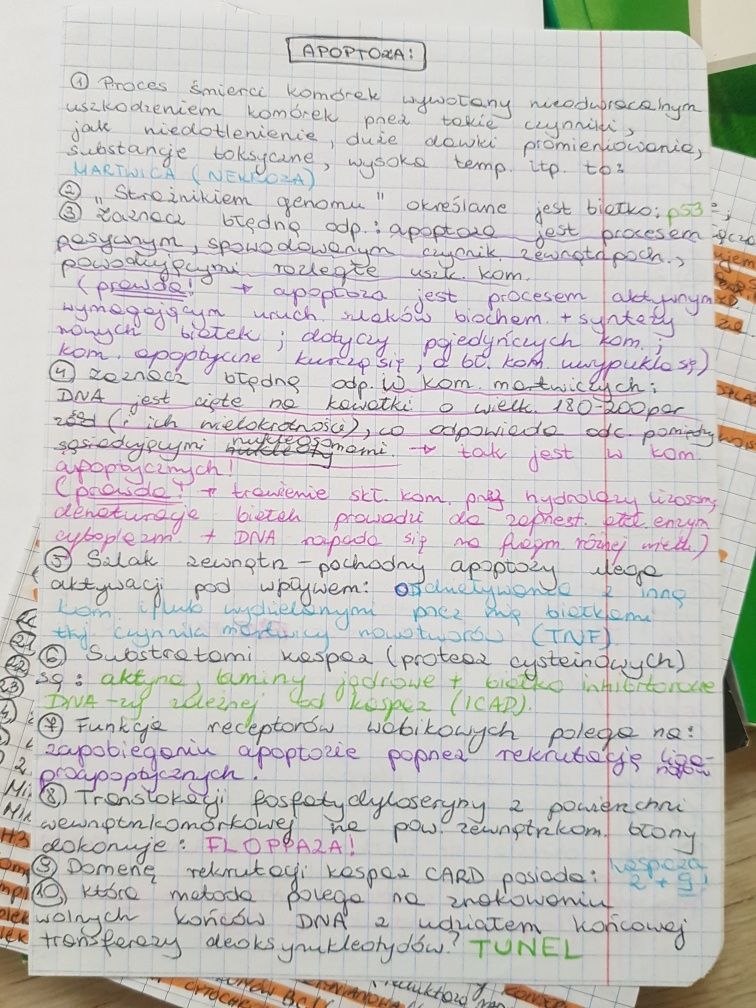 APOPTOZA:
① Proces śmierci komórek wywołany nieodwracalnym
uszkodzeniem komórek przez takie czynniki,
jak niedotlenienie, duże dawki promieniowania,
substancje toksyczne, wysoka temp. itp. to:
MARTWICA (NEKROZA)
② "Strażnikiem genomu" określane jest białko: p53
③ Zaznacz błędną odp.: apoptoza jest procesem
pasywnym, spowodowanym czynnik. zewnątrzpoch.,
powodującymi rozległe uszk. kom.
(prawda! → apoptoza jest procesem aktywnym
wymagającym uruch. szlaków biochem. + syntezy
nowych białek; dotyczy pojedyńczych kom.;
kom. apoptyczne kurczą się, a bł. kom. uwypukla się)
④ Zaznacz błędną odp. W kom. martwiczych:
DNA jest cięte na kawałki o wielk. 180-200par
zasad (i ich wielokrotności), co odpowiada odc. pomiędzy
sąsiadującymi nukleosomami. → tak jest w kom.
apoptycznych!
(prawda! → trawienie skł. kom. przez hydrolazy lizosom,
denaturacja białek prowadzi do zaprzest. akt. enzym
cytoplazm + DNA rozpada się na fragm różnej wielk.)
⑤ Szlak zewnątrz-pochodny apoptozy ulega
aktywacji pod wpływem: oddziaływania z inną
kom i/lub wydzielanymi przez nią białkami
tkj. czynnika martwicy nowotworów (TNF).
⑥ Substratami kaspaz (proteaz cysteinowych)
są: aktyna, laminy jądrowe + białko inhibitorowe
DNA-zy zależnej od kaspaz (ICAD).
⑦ Funkcja receptorów wabikowych polega na:
zapobieganiu apoptozie poprzez rekrutację liga-
ndów
proapoptycznych.
⑧ Translokacji fosfatydyloseryny z powierzchni
wewnątrzkomórkowej na pow. zewnątrzkom. błony
dokonuje: FLOPPAZA!
⑨ Domenę rekrutacji kaspaz CARD posiada: kaspaza
2 + 9!
⑩ Która metoda polega na znakowaniu
wolnych końców DNA z udziałem końcowej
transferazy deoksynukleotydów? TUNEL